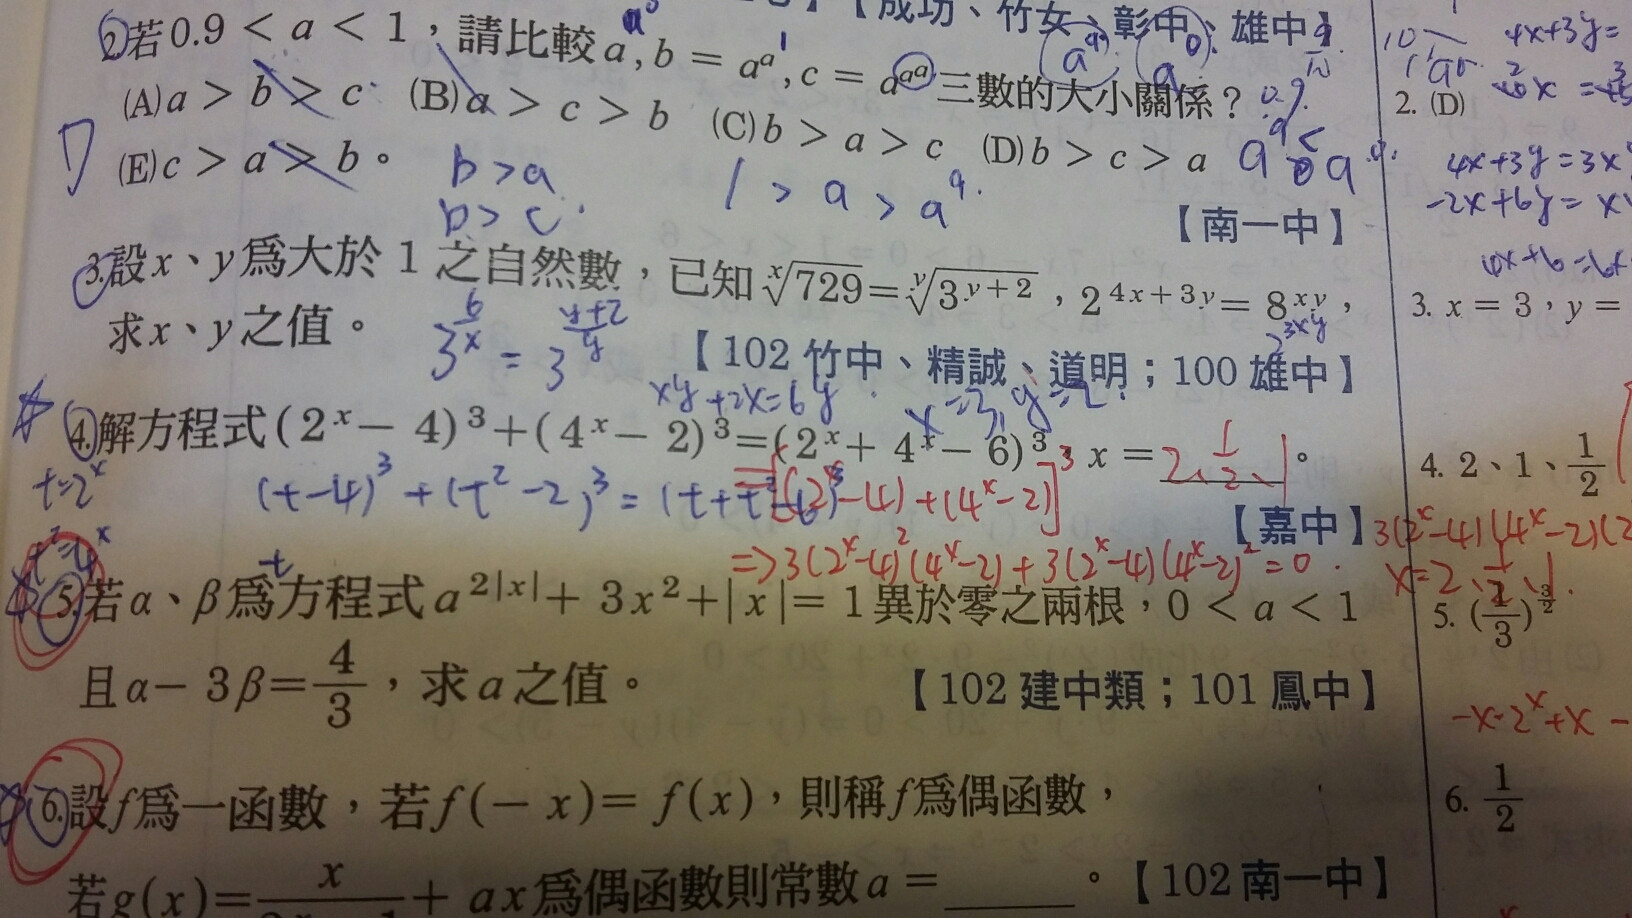 】【成功、竹女、彰中、雄中】
2.若0.9 < a < 1，請比較a, b = a^a, c = a^{a^a}三數的大小關係？
(A)a > b > c (B)a > c > b (C)b > a > c (D)b > c > a
(E)c > a > b。
b > a
b > c
1 > a > a^a
【南一中】
3.設x、y為大於 1 之自然數，已知 \sqrt[x]{729} = \sqrt[y]{3^{y+2}}，2^{4x+3y} = 8^{xy}，
求x、y之值。
3^{6/x} = 3^{(y+2)/y}
2^{3xy}
【102 竹中、精誠、道明；100 雄中】
xy+2x=6y
x=3, y=2
4.解方程式(2^x − 4)^3 + (4^x − 2)^3 = (2^x + 4^x − 6)^3，x = 2、1/2、1。
t=2^x
t^2=4^x
(t-4)^3 + (t^2-2)^3 = (t+t^2-6)^3
=[(2^x-4)+(4^x-2)]^3
【嘉中】
=>3(2^x-4)^2(4^x-2)+3(2^x-4)(4^x-2)^2=0
5.若α、β為方程式a^{2|x|} + 3x^2 + |x| = 1異於零之兩根，0 < a < 1
且α − 3β = 4/3，求a之值。
【102 建中類；101 鳳中】
6.設f為一函數，若f(− x) = f(x)，則稱f為偶函數，
若g(x)= + ax為偶函數則常數a = 。【102 南一中】
4x+3y=
2. (D)
4x+3y=3x
-2x+6y=x
3. x = 3，y =
4. 2、1、1/2
3(2^x-4)(4^x-2)(2
x=2、1/2、1.
5. (1/3)^{3/2}
-x·2^x+x-
6. 1/2